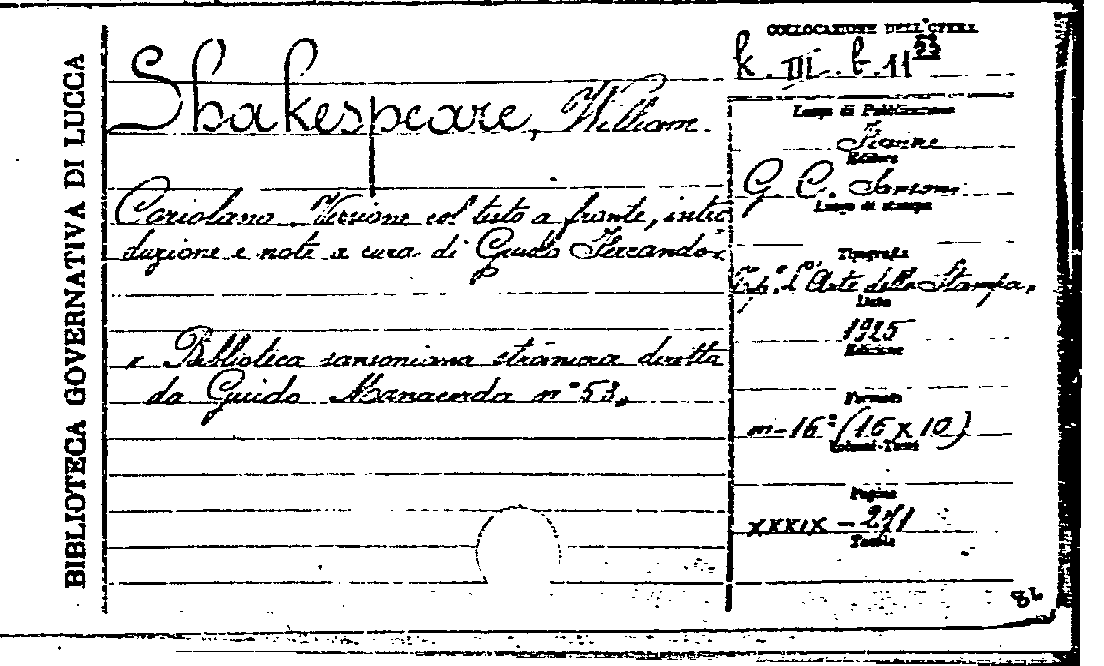 BIBLIOTECA GOVERNATIVA DI LUCCA
Shakespeare, William.
Coriolano. Versione col testo a fronte, intro
duzione e note a cura di Guido Ferrando.
Biblioteca sansoniana straniera diretta
da Guido Manacorda n° 53.
COLLOCAZIONE DELL'OPERA
k. III. b. 11 53
Luogo di Pubblicazione
Firenze
Editore
G. C. Sansoni
Luogo di stampa
Tipografia
Tip. L'Arte della Stampa.
Data
1925
Edizione
Formato
m-16° (16 x 10)
Volumi-Tomi
Pagine
XXXIX - 271
Tavole